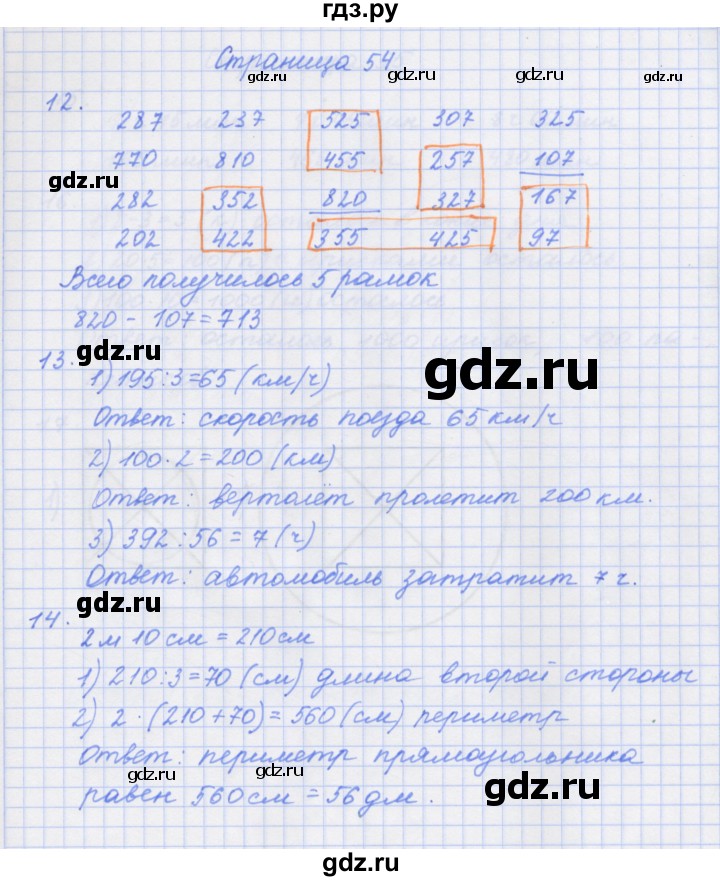 гдз.ру
Страница 54
gdz.ru gdz.ru gdz.ru
12.
287 237 525 307 325
770 810 455 257 107
282 352 820 327 167
202 422 355 425 97
gdz.ru gdz.ru gdz.ru
Всего получилось 5 рамок
820 - 107 = 713
gdz.ru gdz.ru
13.
1) 195:3=65 (км/ч)
Ответ: скорость поезда 65 км/ч
gdz.ru gdz.ru
2) 100·2=200 (км)
Ответ: вертолёт пролетит 200 км.
gdz.ru gdz.ru
3) 392:56=7 (ч)
Ответ: автомобиль затратит 7 ч.
gdz.ru
14.
2 м 10 см = 210 см
gdz.ru gdz.ru
1) 210:3=70 (см) длина второй стороны
2) 2·(210+70)=560 (см) периметр
Ответ: периметр прямоугольника
gdz.ru gdz.ru gdz.ru
равен 560 см = 56 дм.
gdz.ru